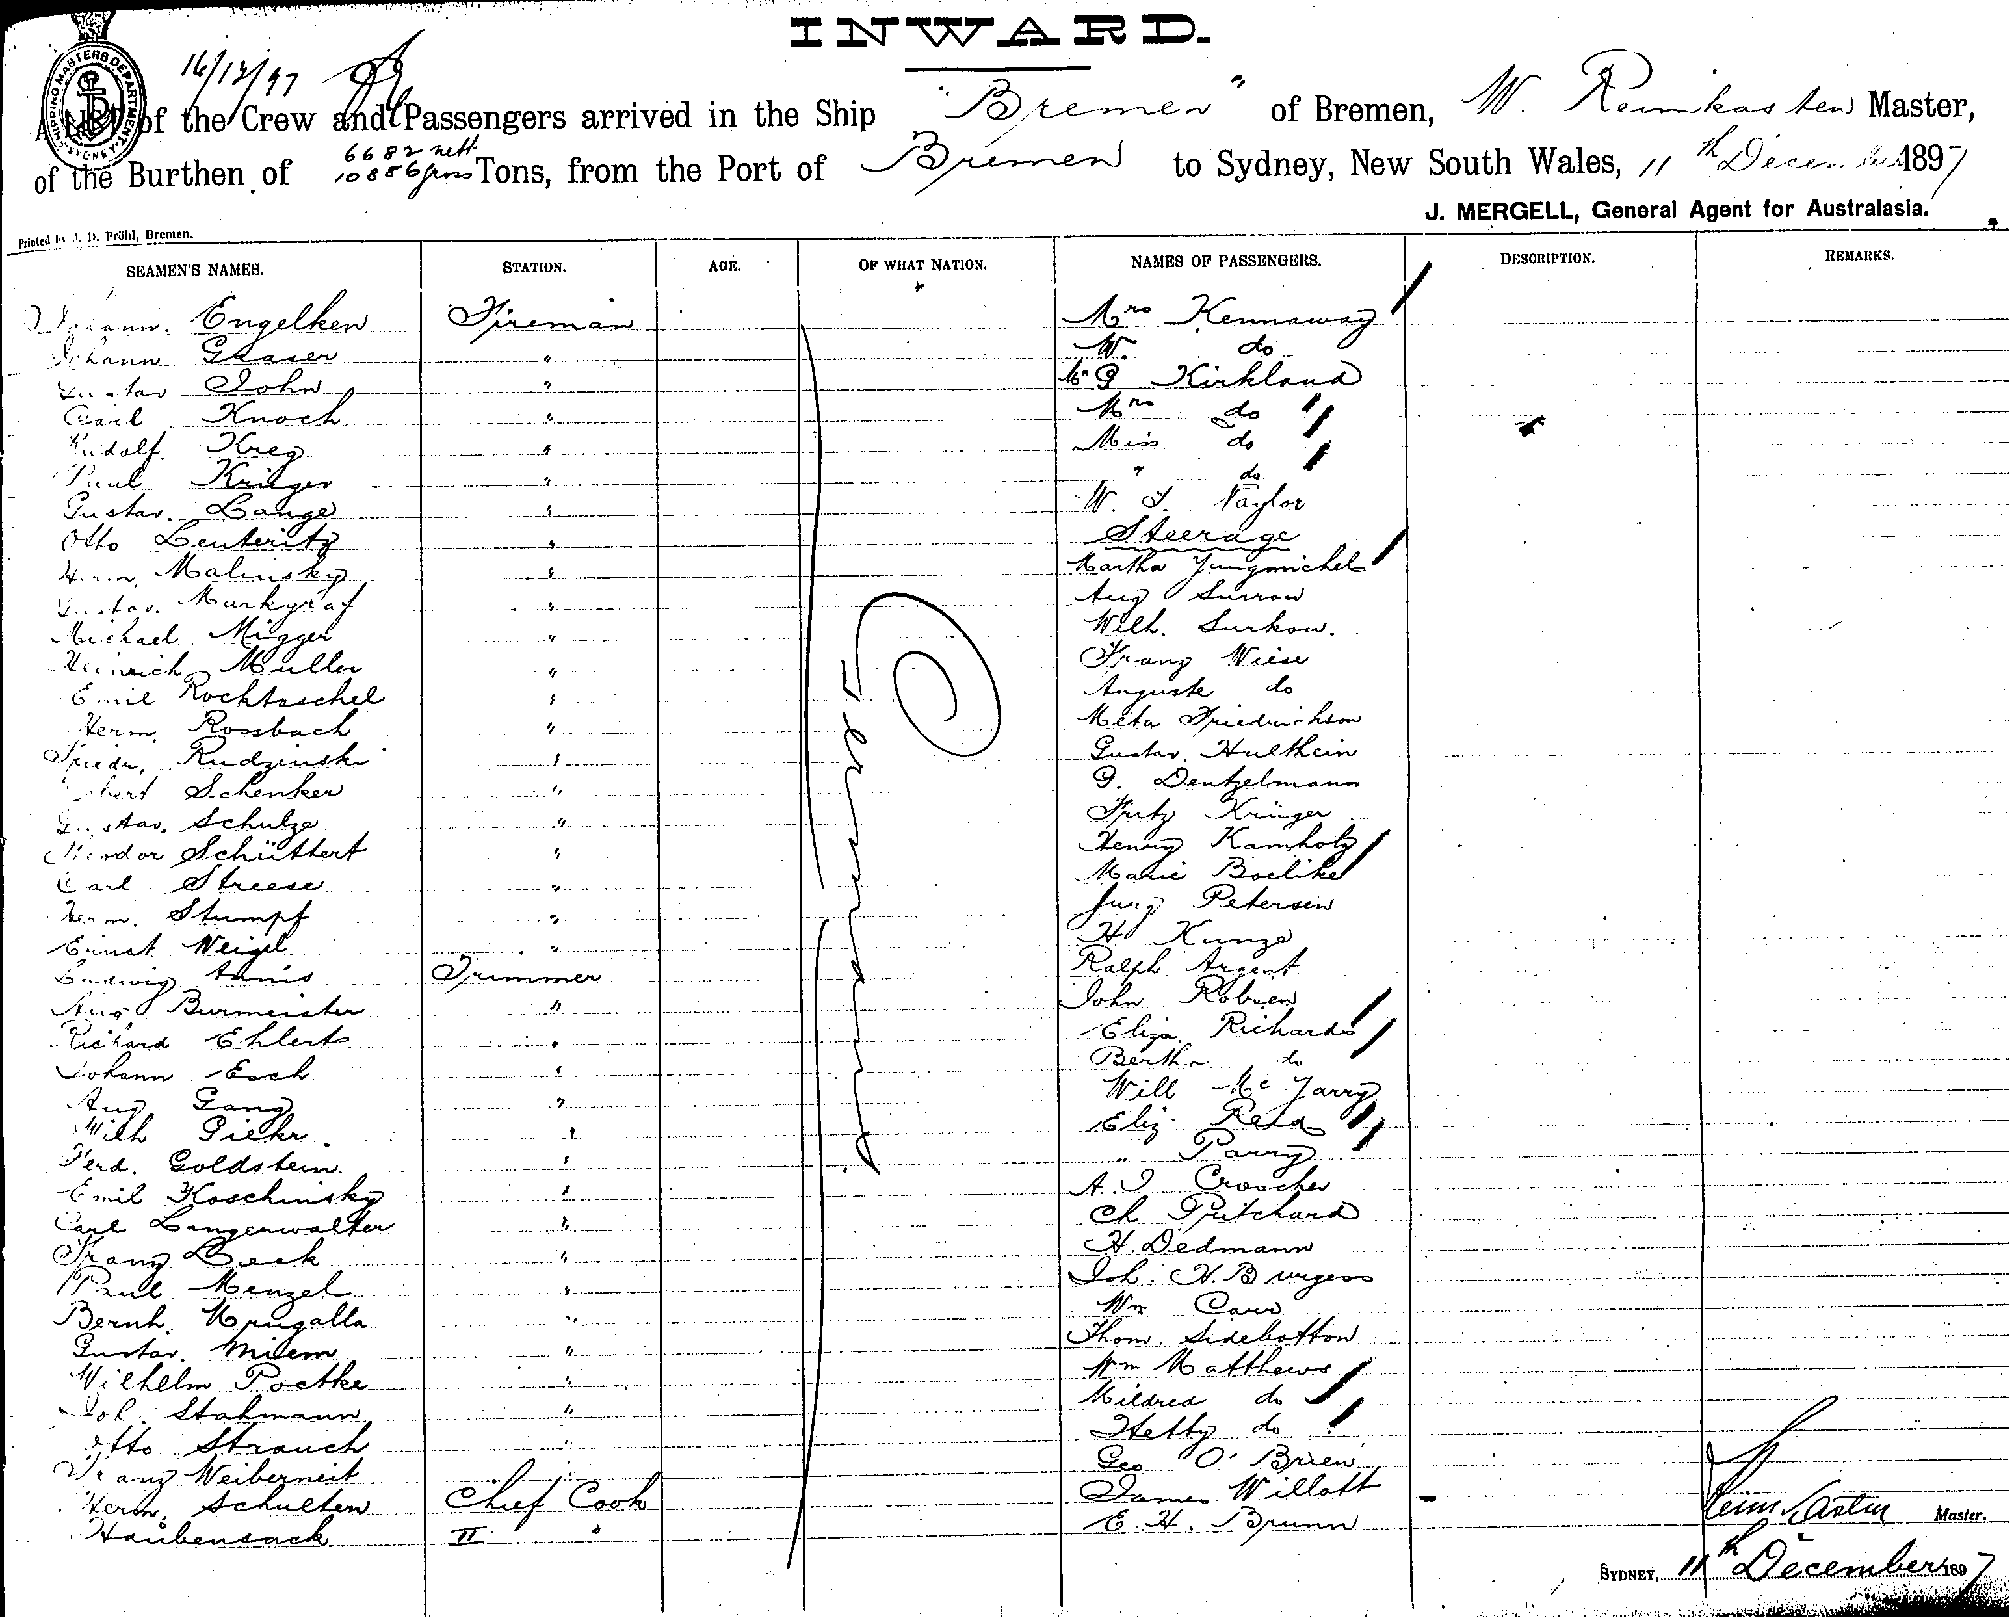 INWARD.
16/12/97
of the Crew and Passengers arrived in the Ship "Bremen" of Bremen, W. Reimkasten Master,
6682 nett
of the Burthen of 10886 gross Tons, from the Port of Bremen to Sydney, New South Wales, 11th December 1897
J. MERGELL, General Agent for Australasia.
Printed by J. D. Pröhl, Bremen.
SEAMEN'S NAMES. STATION. AGE. OF WHAT NATION. NAMES OF PASSENGERS. DESCRIPTION. REMARKS.
Johann. Engelken Fireman Mrs Kennaway
Johann Glaser " W. do
Gustav John " Mr G Kirkland
Carl Knoch " Mrs do
Rudolf. Kreg " Miss do
Paul Krüger " " do
Gustav. Lange " W. J. Naylor
Otto Leuteritz " Steerage
Herm. Malinsky " Martha Jungmichel
Gustav. Markgraf " Aug Surrow
Michael Mügger " Wilh. Surkow.
Heinrich Müller " Franz Wiese
Emil Rochtaschel " Auguste do
Herm. Rossbach " Meta Friedrichson
Friedr. Rudzinski " Gustav. Hulthein
Schenker " G. Dentzelmann
Gustav. Schulze " Fritz Krüger
Theodor Schüttert " Henry Kamholz
Carl Streese " Marie Boelike
Herm. Stumpf " Jung Petersen
Ernst Weigel " H Kunze
Ludwig Trimmer Ralph Argent
Aug Burmeister " John Robsen
Richard Ehlert " Eliza Richards
Johann Esch " Bertha do
Aug Gang " Will Mc Garry
Wilh Giehr. " Eliz. Reid
Ferd. Goldstein " " Parry
Emil Koschinsky " A. J Croocher
Carl Langerwalter " Ch Pritchard
Franz Leck " H. Dedmann
Paul Menzel " Joh. H. Burgess
Bernh. " Wm Carr
Gustav. Milem " Thom. Sidebottom
Wilhelm Poetke " Wm Matthews
Joh. Stahmann " Mildred do
Otto Strauch " Hetty do
Franz Weiberneit " Geo O'Brien
Herm. Schulten Chief Cook James Willott
Haubensack II " E. H. Brunn
German
Reimkasten Master.
SYDNEY, 11th December 1897